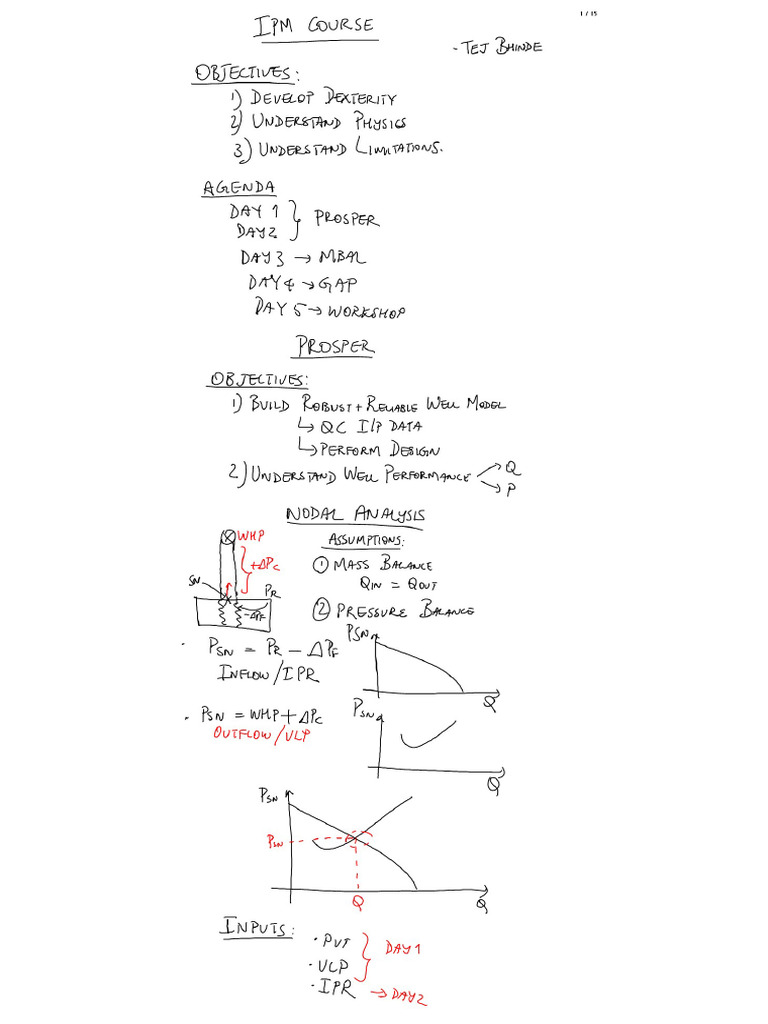 1 / 15
IPM COURSE
- TEJ BHINDE
OBJECTIVES:
1) DEVELOP DEXTERITY
2) UNDERSTAND PHYSICS
3) UNDERSTAND LIMITATIONS.
AGENDA
DAY 1
DAY 2
} PROSPER
DAY 3 → MBAL
DAY 4 → GAP
DAY 5 → WORKSHOP
PROSPER
OBJECTIVES:
1) BUILD ROBUST + RELIABLE WELL MODEL
↳ QC I/P DATA
↳ PERFORM DESIGN
2) UNDERSTAND WELL PERFORMANCE
→ Q
→ P
NODAL ANALYSIS
WHP
+ΔPc
SN
PR
-ΔPF
ASSUMPTIONS:
① MASS BALANCE
QIN = QOUT
② PRESSURE BALANCE
· PSN = PR - ΔPF
INFLOW/IPR
PSN
Q
· PSN = WHP + ΔPc
OUTFLOW/VLP
PSN
Q
PSN
PSN
Q
Q
INPUTS:
· PVT
· VLP
} DAY 1
· IPR → DAY 2